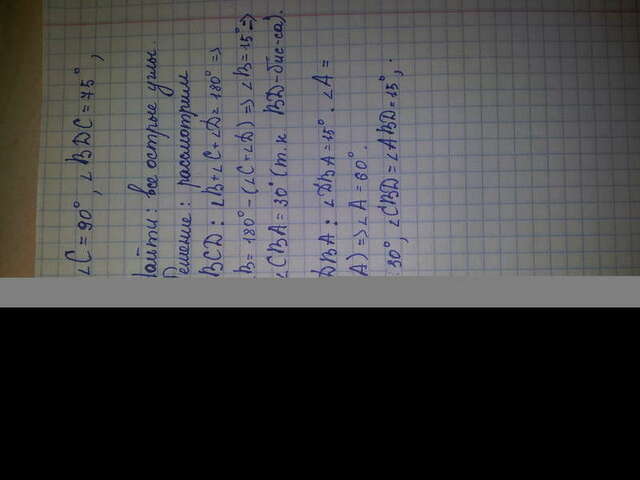 ∠C = 90°, ∠BDC = 75°,
Найти: все острые углы.
Решение: рассмотрим
BCD: ∠B+∠C+∠D=180° =>
B = 180° - (∠C+∠D) => ∠B=15° =>
∠CBA = 30° (т.к BD-бис-са).
DBA: ∠DBA = 15°. ∠A =
A) => ∠A = 60°.
30°, ∠CBD = ∠ABD = 15°,